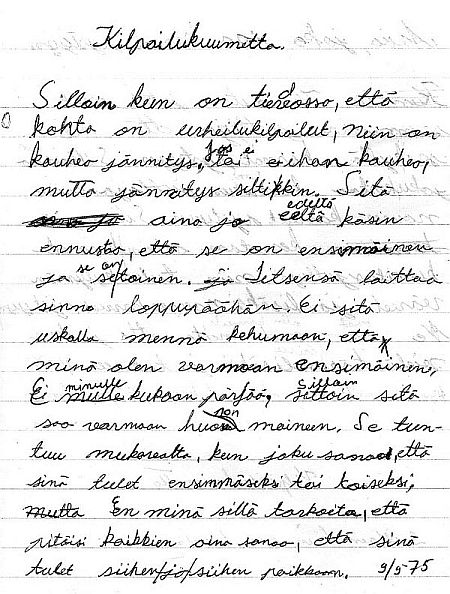 Kilpailukuumetta.
Silloin kun on tiedossa, että
kohta on urheilukilpailut, niin on
kauhea jännitys, Jos ei tai ei ihan kauhea,
mutta jännitys sittikkin. Sitä
aina jo edeltä käsin
ennustaa, että se on ensimmäinen
ja se on se toinen. ja Itsensä laittaa
sinne loppupäähän. Ei sitä
uskalla mennä kehumaan, että
minä olen varmaan ensimäinen,
Ei minulle kukaan pärjää, silloin sitä
saa varmaan huonon maineen. Se tun-
tuu mukavalta, kun joku sanoo, että
sinä tulet ensimmäseksi tai toiseksi,
mutta En minä sillä tarkoita, että
pitäisi kaikkien aina sanoa, että sinä
tulet siihen ja siihen paikkaan. 9/5-75